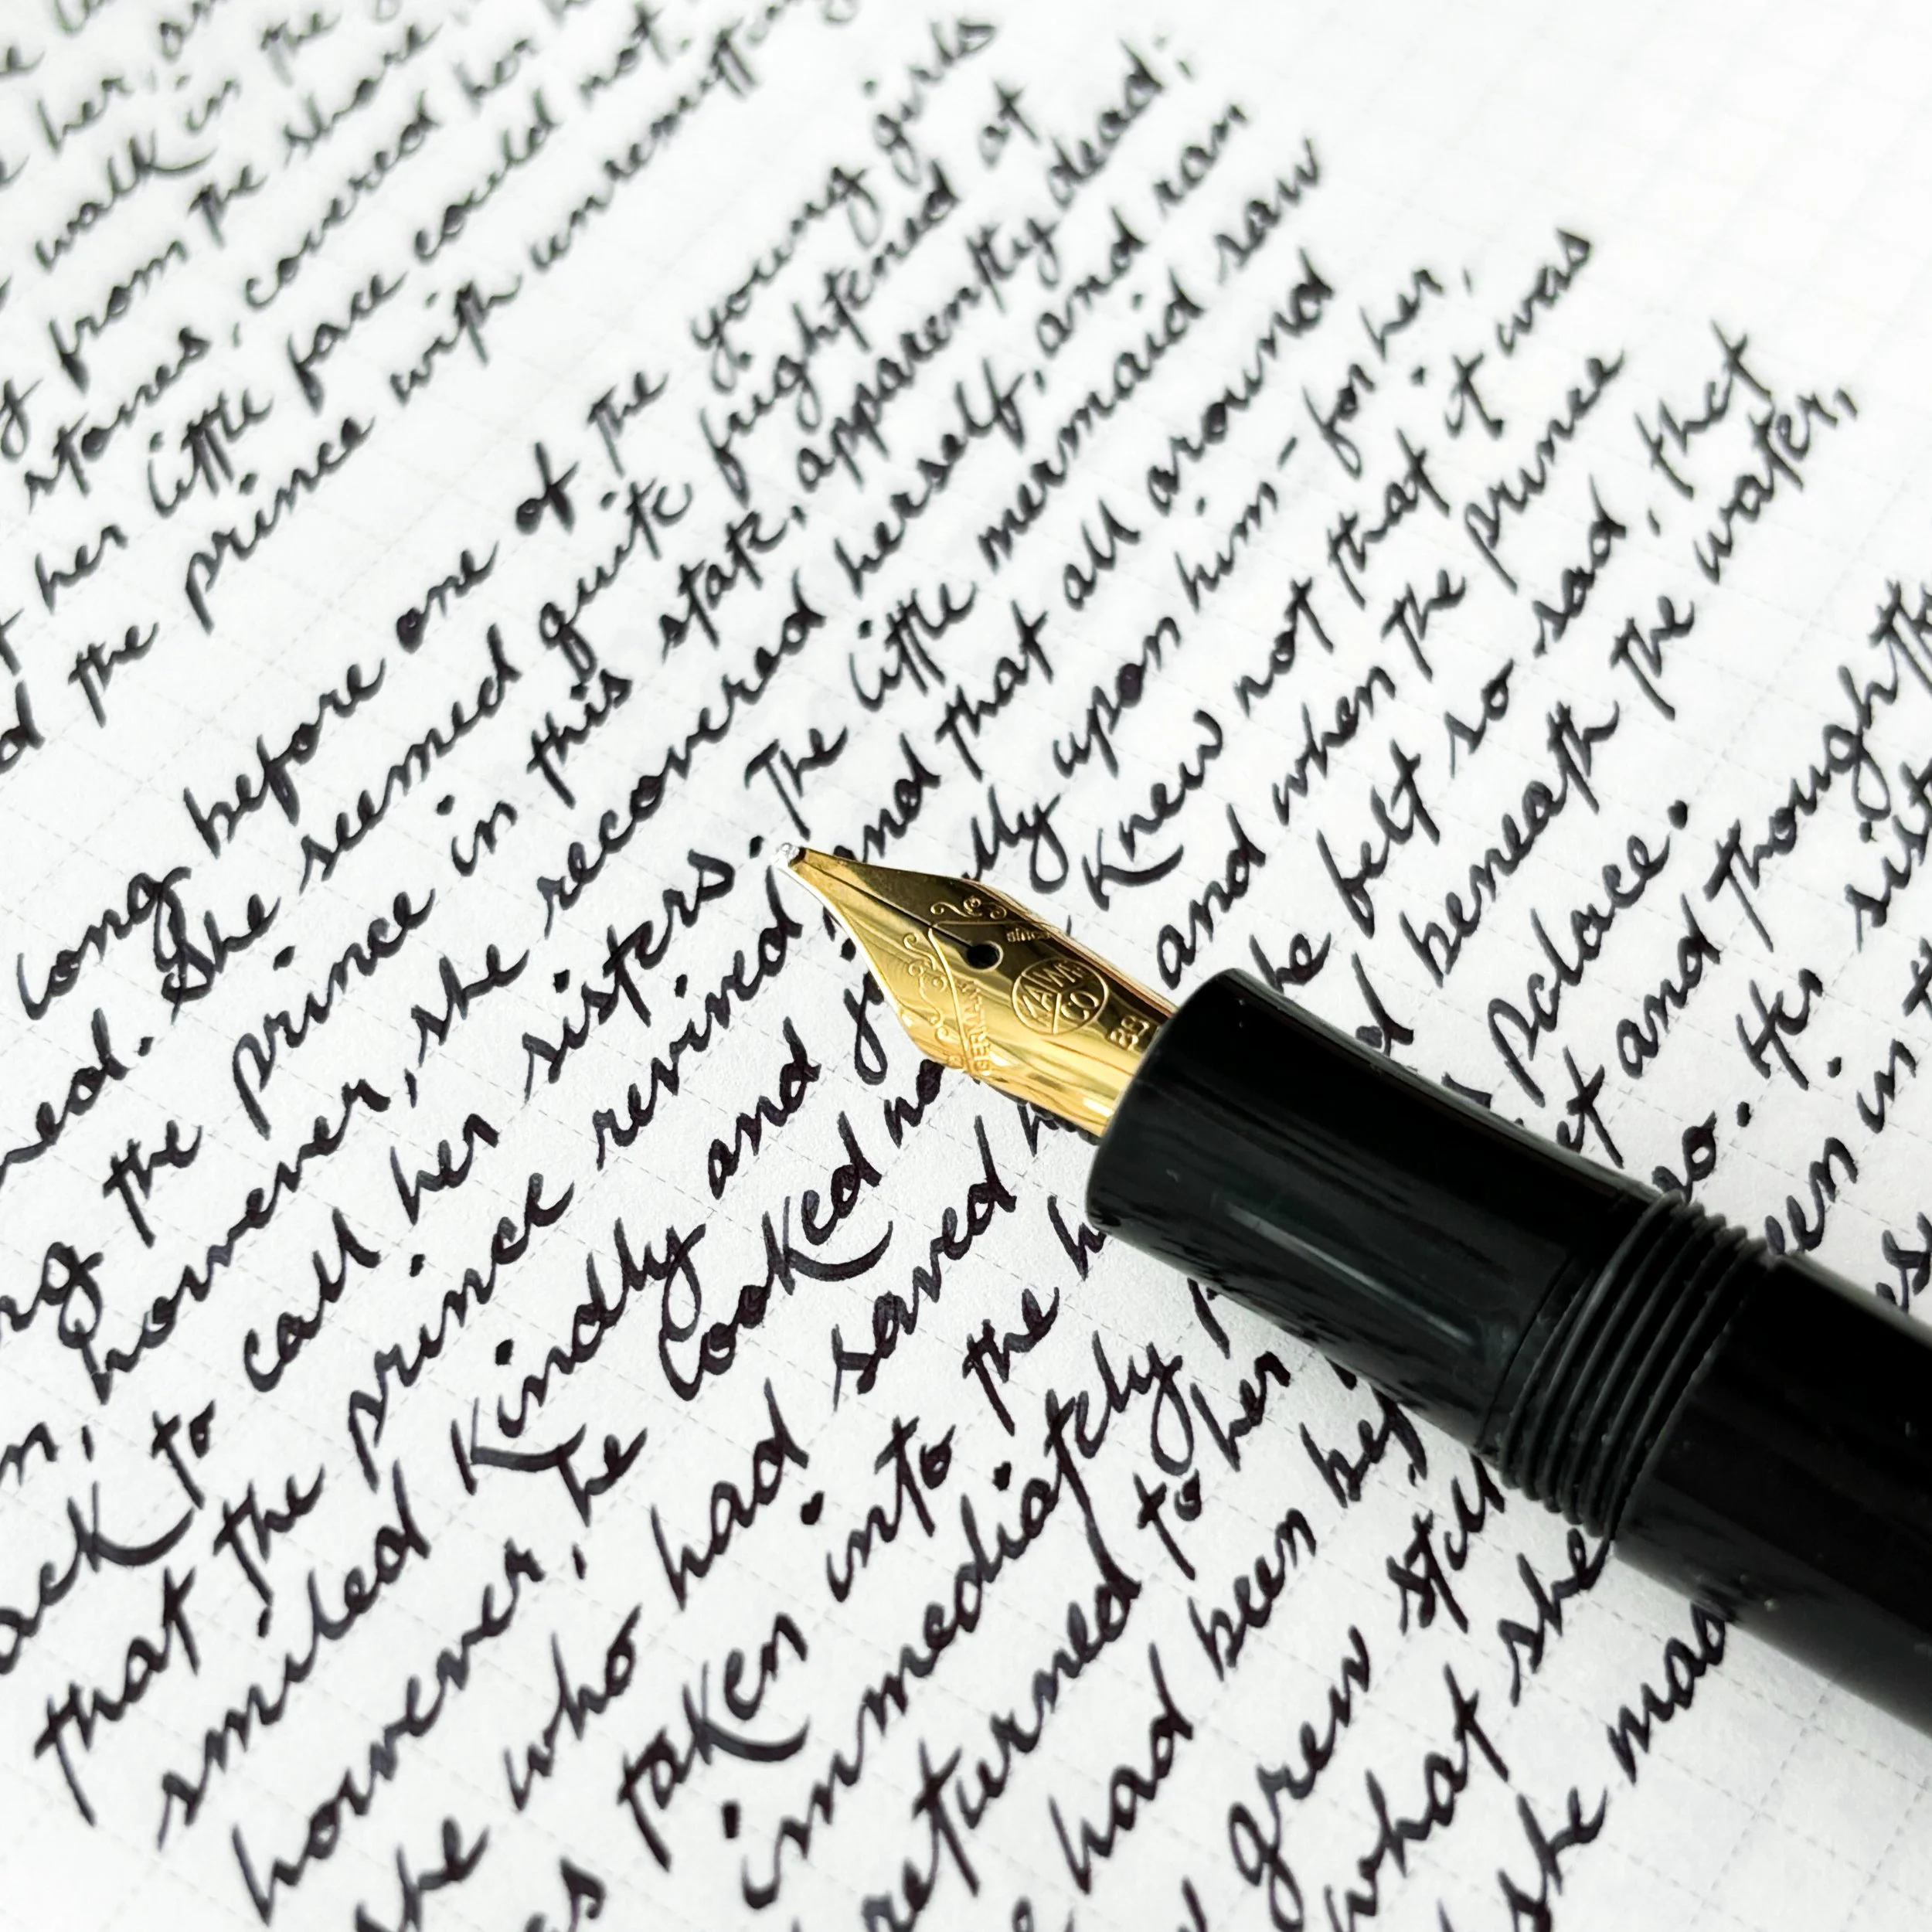 her, an
walk in the
from the shore, 
stones, covered her h
her little face could not.
the prince with unremitt
long before one of the young girls
ned. She seemed quite frightened at
ng the prince in this state, apparently dead;
n, however, she recovered herself, and ran
ack to call her sisters. The little mermaid saw
that the prince revived and that all around
smiled Kindly and j lly upon him - for her,
however, he looked no Knew not that it was
he who had saved h and when the prince
s taken into the h he felt so sad, that
immediately beneath the water,
returned to her palace.
had been bef et and thoughtf
grew still so. Her sist
what she een in t
she mad
since
KAWE
CO
GERMANY